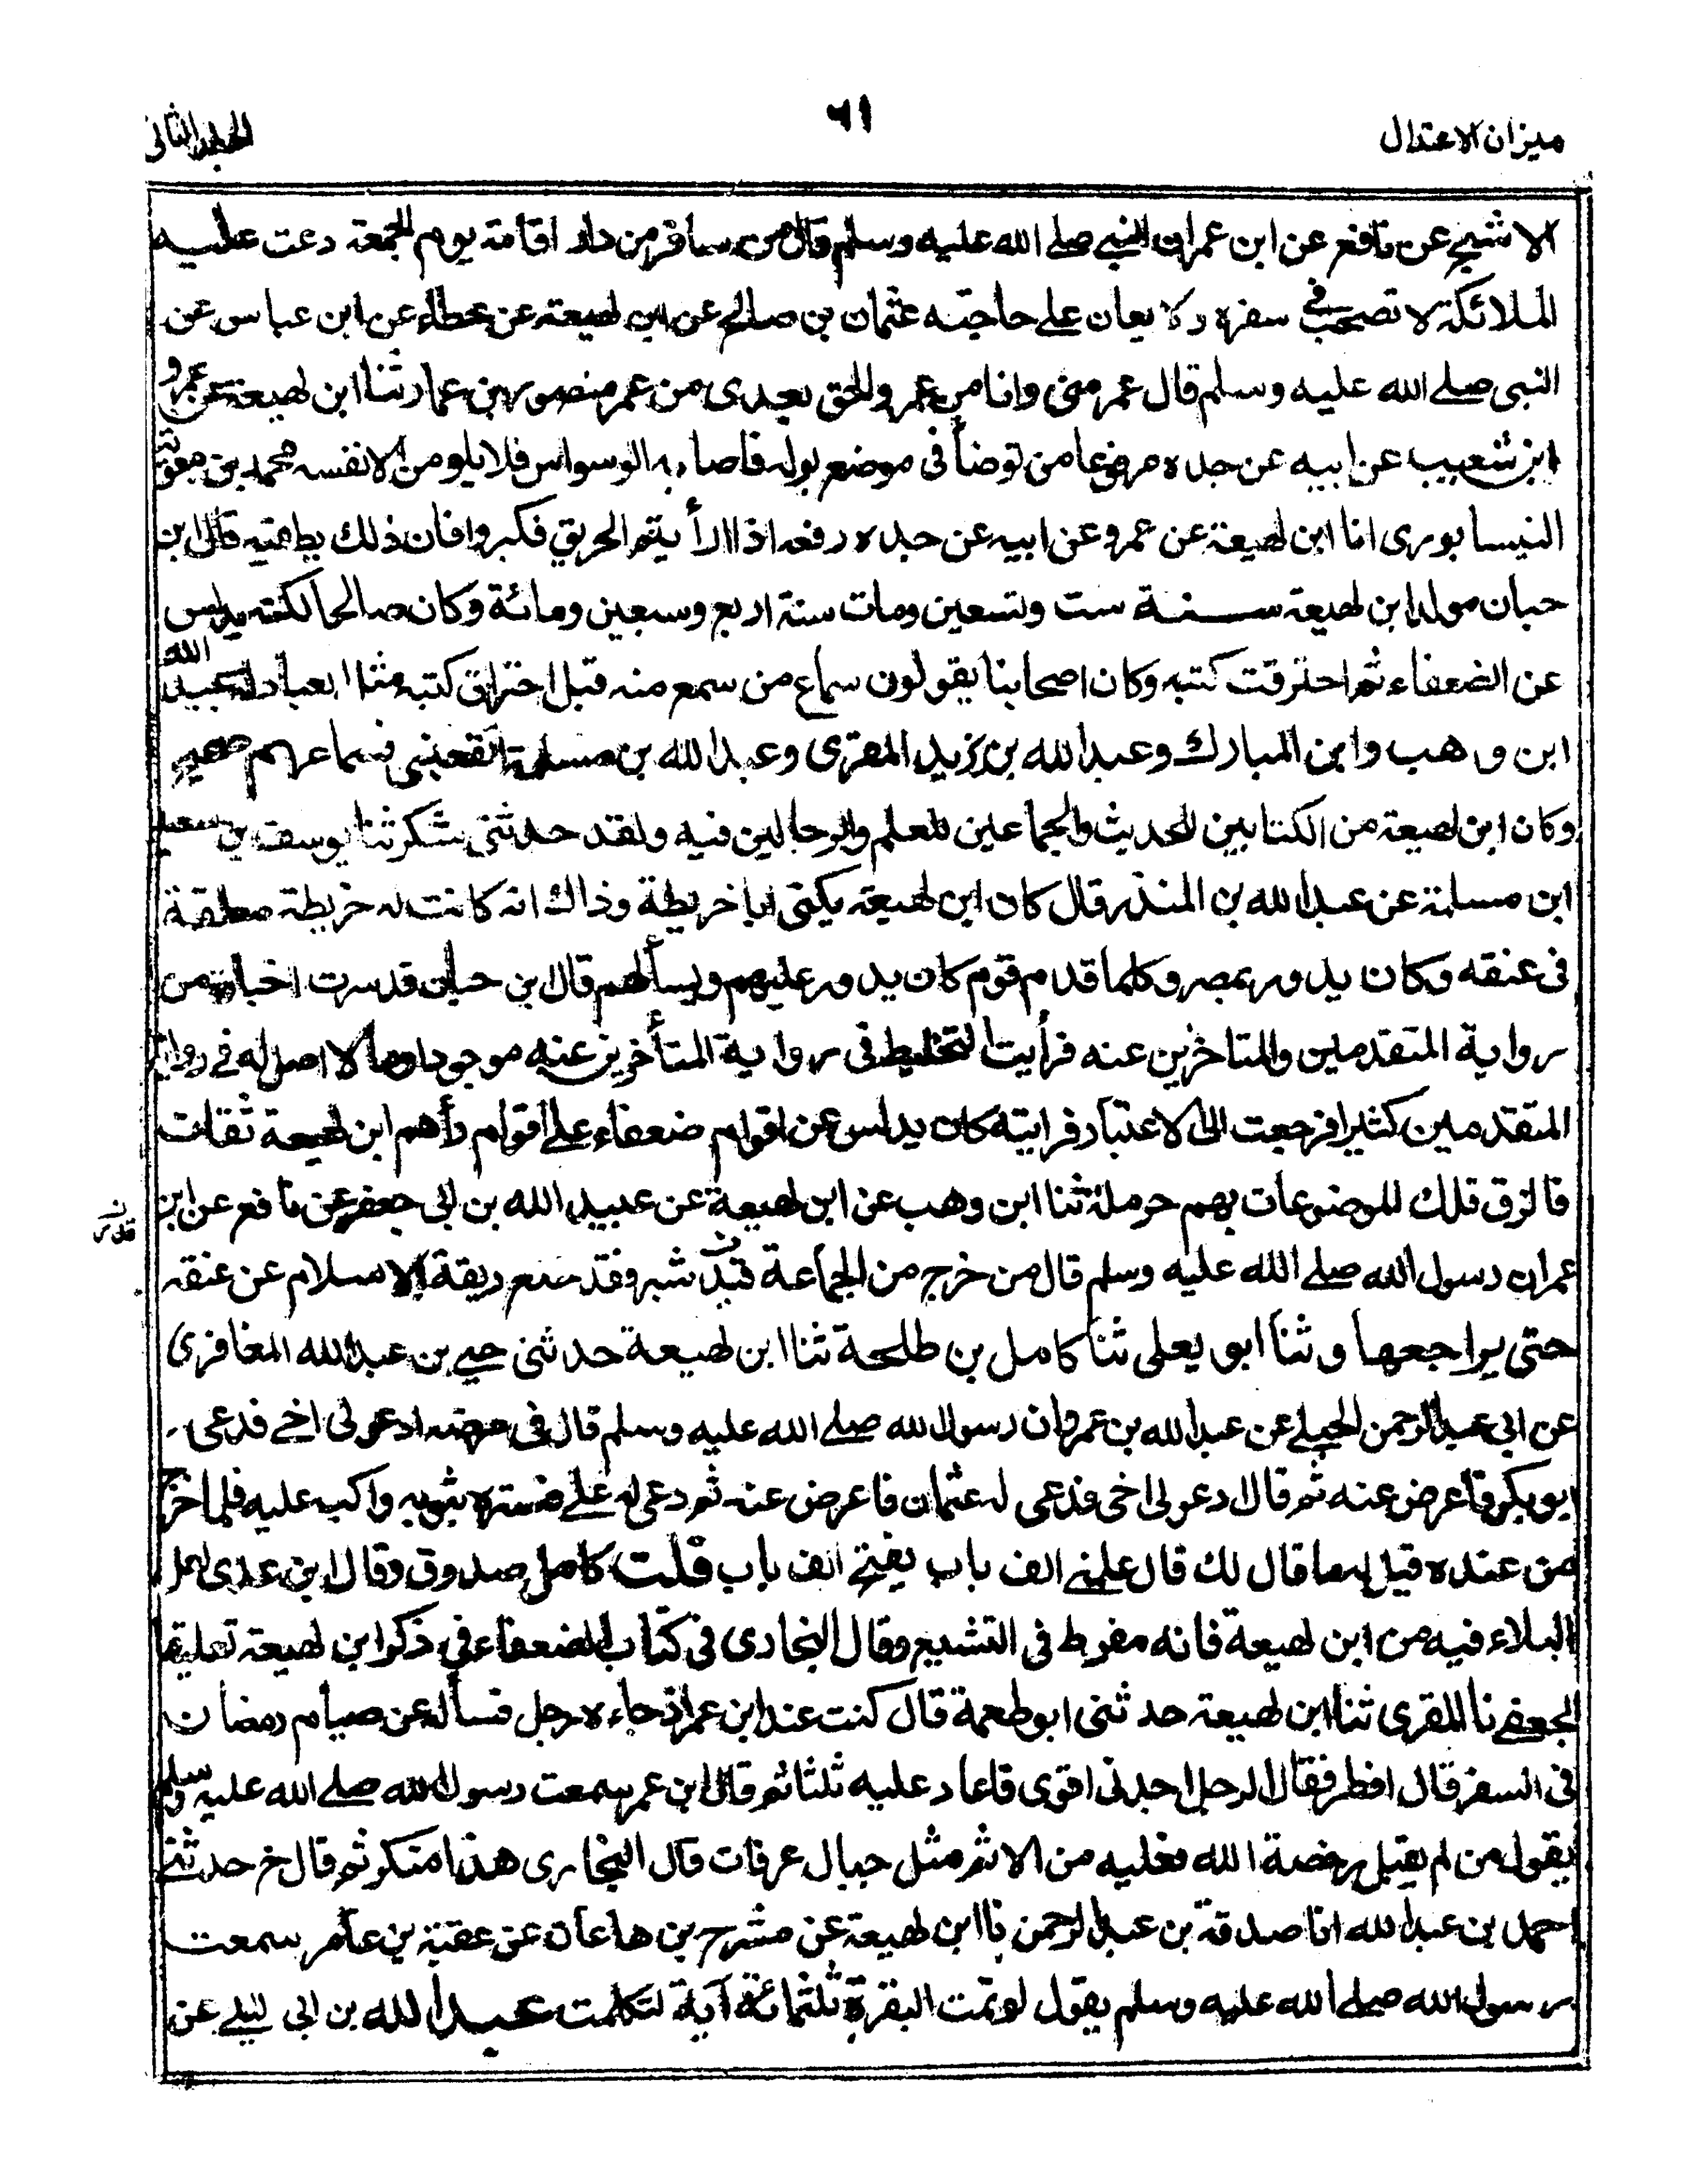 ميزان الاعتدال
٦١
المجلد الثانى
الاشج عن نافع عن ابن عمران النبى صلے الله عليه وسلم قال من سافر من دار اقامة يوم الجمعة دعت عليه
الملائكة لا تصحب فى سفره ولا يعان علے حاجته عثمان بن صالح عن ابن لهيعة عن عطاء عن ابن عباس عن
النبى صلے الله عليه وسلم قال عمر منى وانا من عمر والحق بعدى من عمر منصور بن عمار ثنا ابن لهيعة عن عمرو
ابن شعيب عن ابيه عن جده مرفوعا من توضأ فى موضع بوله فاصابه الوسواس فلا يلومن الا نفسه محمد بن معوية
النيسابورى انا ابن لهيعة عن عمرو عن ابيه عن جده رفعه اذا رأيتم الحريق فكبروا فان ذلك يطفئه قال ابن
حبان مولد ابن لهيعة سنة ست وتسعين ومات سنة اربع وسبعين ومائة وكان صالحا لكنه يدلس
عن الضعفاء ثم احترقت كتبه وكان اصحابنا يقولون سماع من سمع منه قبل احتراق كتبه مثل العبادلة عبد الله
ابن وهب وابن المبارك وعبد الله بن يزيد المقرى وعبد الله بن مسلمة القعنبى فسماعهم صحيح
وكان ابن لهيعة من الكتابين للحديث والجماعين للعلم والرحالين فيه ولقد حدثنى شكر ثنا يوسف بن سعيد
ابن مسلمة عن عبد الله بن المنذر قال كان ابن لهيعة يكنى ابا خريطة وذاك انه كانت له خريطة معلقة
فى عنقه وكان يدور بمصر وكلما قدم قوم كان يدور عليهم ويسألهم قال بن حبان قد سبرت اخباره من
رواية المتقدمين والمتاخرين عنه فرأيت التخليط فى رواية المتأخرين عنه موجودا وما لا اصل له فے رواية
المتقدمين كثيرا فرجعت الى الاعتبار فرايته كان يدلس عن اقوام ضعفاء علے اقوام رأهم ابن لهيعة ثقات
فالزق تلك الموضوعات بهم حرملة ثنا ابن وهب عن ابن لهيعة عن عبيد الله بن ابى جعفر عن نافع عن ابن
عمر ان رسول الله صلے الله عليه وسلم قال من خرج من الجماعة قيد شبر فقد خلع ربقة الاسلام عن عنقه
حتى يراجعها وثنا ابو يعلى ثنا كامل بن طلحة ثنا ابن لهيعة حدثنى حيے بن عبد الله المغافرى
عن ابى عبد الرحمن الحبلے عن عبد الله بن عمر وان رسول الله صلے الله عليه وسلم قال فى مرضه ادعو لى اخے فدعى
ابو بكر فاعرض عنه ثم قال ادعو لى اخى فدعى له عثمان فاعرض عنه ثم دعى له علے فستره بثوبه واكب عليه فلما خرج
من عنده قيل له ما قال لك قال علمنے الف باب يفتح الف باب قلت كامل صدوق وقال ابن عدى لعل
البلاء فيه من ابن لهيعة فانه مفرط فى التشيع وقال البخارى فى كتاب الضعفاء فى ذكر ابن لهيعة تعليقا
الجعفے نا المقرى ثنا ابن لهيعة حدثنى ابو طعمة قال كنت عند ابن عمر اذ جاءه رجل فسأله عن صيام رمضان
فى السفر قال افطر فقال الرجل اجدنى اقوى فاعاد عليه ثلثا ثم قال ابن عمر سمعت رسول الله صلے الله عليه وسلم
يقول من لم يقبل رخصة الله فعليه من الاثم مثل جبال عرفات قال البخارى هذا منكر ثم قال خ حدثنے
احمد بن عبد الله انا صدقة بن عبد الرحمن نا ابن لهيعة عن مشرح بن هاعان عن عقبة بن عامر سمعت
رسول الله صلے الله عليه وسلم يقول لو تمت البقرة ثلثمائة آية لتكلمت عبد الله بن ابى ليلے عن